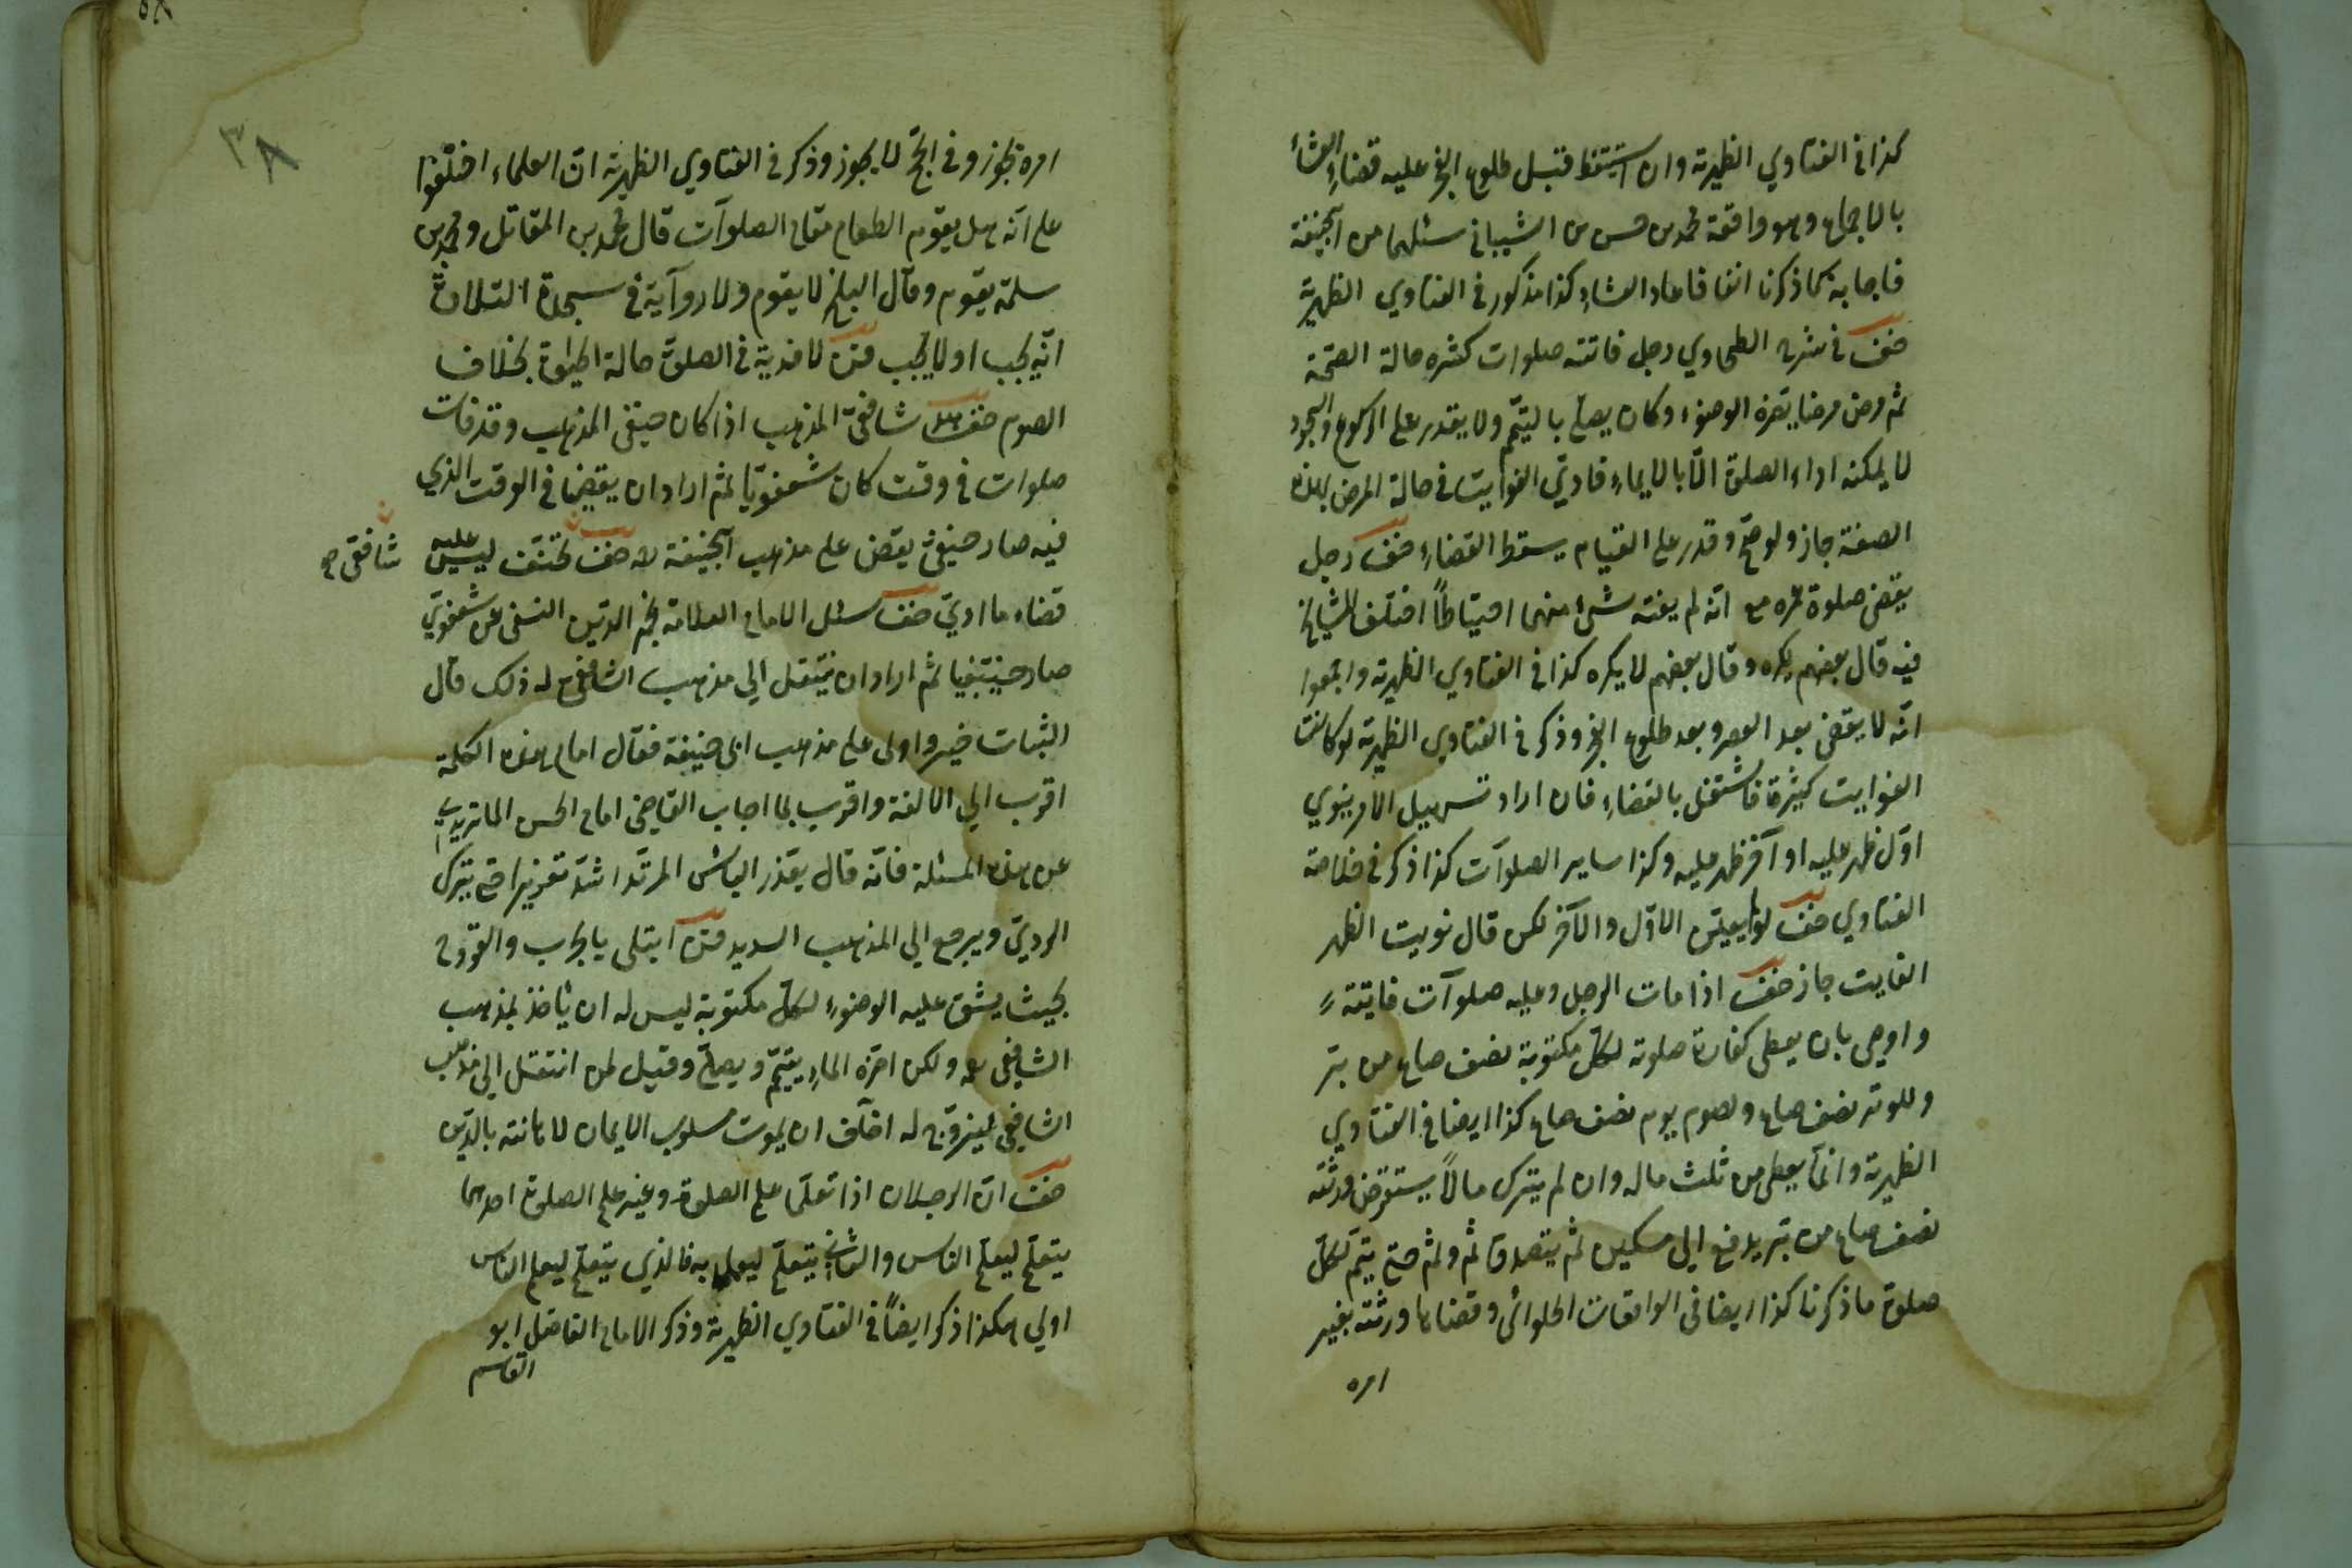 كذا في الفتاوي الظهيرية وان استيقظ قبل طلوع الفجر عليه قضاء العشاء
بالاجماع وهو واقعة محمد بن حسن الشيباني سئلها من ابيحنيفة
فاجابه كما ذكرنا انفا فاعاد العشاء كذا مذكور في الفتاوي الظهيرية
حنف في شرح الطحاوي رجل فاتته صلوات كثيره حالة الصحة
ثم مرض مرضا يضره الوضوء وكان يصلي بالتيمم ولا يقدر على الركوع والسجود
لا يمكنه اداء الصلوة الا بالايماء فادي الفوايت في حالة المرض بهذه
الصفة جاز ولو صح وقدر على القيام يسقط القضاء حنف رجل
يقضي صلوة عمره مع انه لم يفته شئ منها احتياطا اختلف المشايخ
فيه قال بعضهم يكره وقال بعضهم لا يكره كذا في الفتاوي الظهيرية واجمعوا
انه لا يقضي بعد العصر وبعد طلوع الفجر وذكر في الفتاوي الظهيرية لو كانت
الفوايت كثيرة فاشتغل بالقضاء فان اراد تسهيل الامر ينوي
اول ظهر عليه او آخر ظهر عليه وكذا ساير الصلوات كذا ذكر في خلاصة
الفتاوي حنف لو لم يعين الاول والآخر لكن قال نويت الظهر
الفايت جاز حنف اذا مات الرجل وعليه صلوات فايتة
واوصى بان يعطى كفارة صلوته لكل مكتوبة نصف صاع من بر
وللوتر نصف صاع ولصوم يوم نصف صاع كذا ايضا في الفتاوي
الظهيرية وانما يعطى من ثلث ماله وان لم يترك مالا يستقرض ورثته
نصف صاع من بر يدفع الي مسكين ثم يتصدق ثم وثم حتى يتم لكل
صلوة ما ذكرنا كذا ايضا في الواقعات الحلوائى وقضاها ورثته بغير
امره
٣٨
امره تجوز وفي الحج لا يجوز وذكر في الفتاوي الظهيرية ان العلماء اختلفوا
على انه هل يقوم الطعام مقام الصلوات قال محمد بن المقاتل ومحمد بن
سلمة يقوم وقال البلخي لا يقوم ولا رواية في سجدة التلاوة
انه يجب او لا يجب لا فدية في الصلوة حالة الحيوة بخلاف
الصوم حنف شافعي المذهب اذا كان حنيفي المذهب وقد فات
صلوات في وقت كان شفعويا ثم اراد ان يقضيها في الوقت الذي
فيه صار حنيفي يقضي على مذهب ابيحنيفة حنف ليس عليه
شافعي صح
قضاء ما ادي حنف سئل الامام العلامة نجم الدين النسفي عن شفعوي
صار حنيفيا ثم اراد ان ينتقل الي مذهب الشافعي له ذلك قال
الثبات خير واولى على مذهب ابى حنيفة فقال امام هذه الكلمة
اقرب الي الالفة واقرب لما اجاب القاضي امام الحسن الماتريدي
عن هذه المسئلة فانه قال يعزر المرتد اشد تعزيرا حتى يترك
الردي ويرجع الي المذهب السديد ابتلى بالجرب والقروح
بحيث يشق عليه الوضوء لكل مكتوبة ليس له ان يأخذ بمذهب
الشافعي ولكن اضره الماء يتيمم ويصلي وقيل لمن انتقل الي مذهب
الشافعي ليزوج له اخاف ان يموت مسلوب الايمان لاهانته بالدين
حنف ان الرجلان اذا تعلما علم الصلوة وغيره علم الصلوة احدهما
يتعلم ليعلم الناس والثاني يتعلم ليعمل به فالذي يتعلم ليعلم الناس
اولي هكذا ذكر ايضا في الفتاوي الظهيرية وذكر الامام الفاضل ابو
القاسم